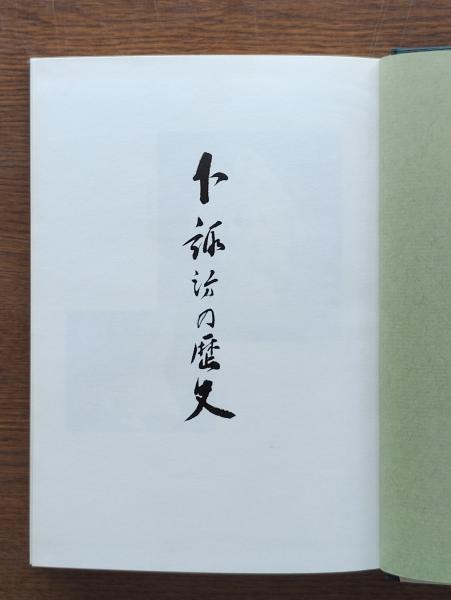 下諏訪の歴史